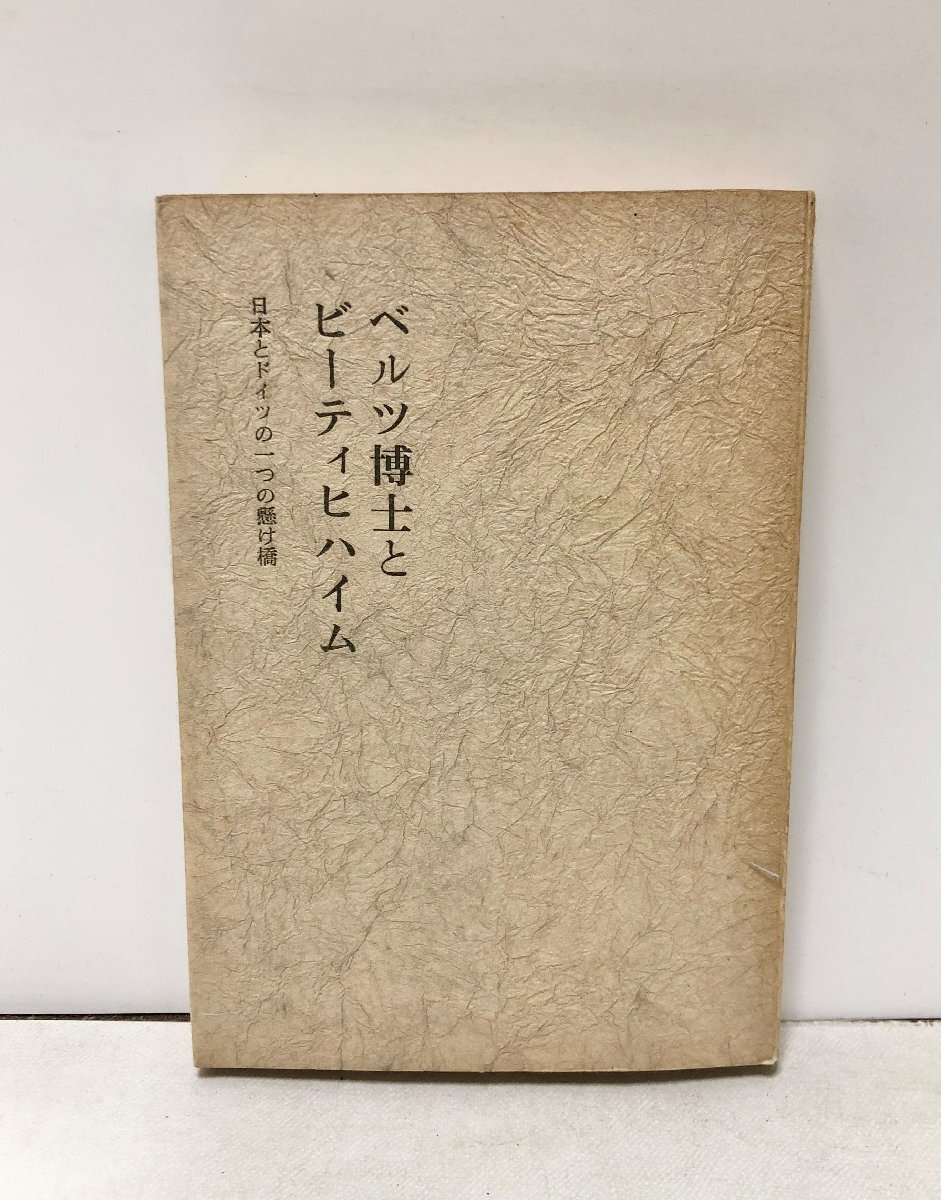 ベルツ博士と
ビーティヒハイム
日本とドイツの一つの懸け橋